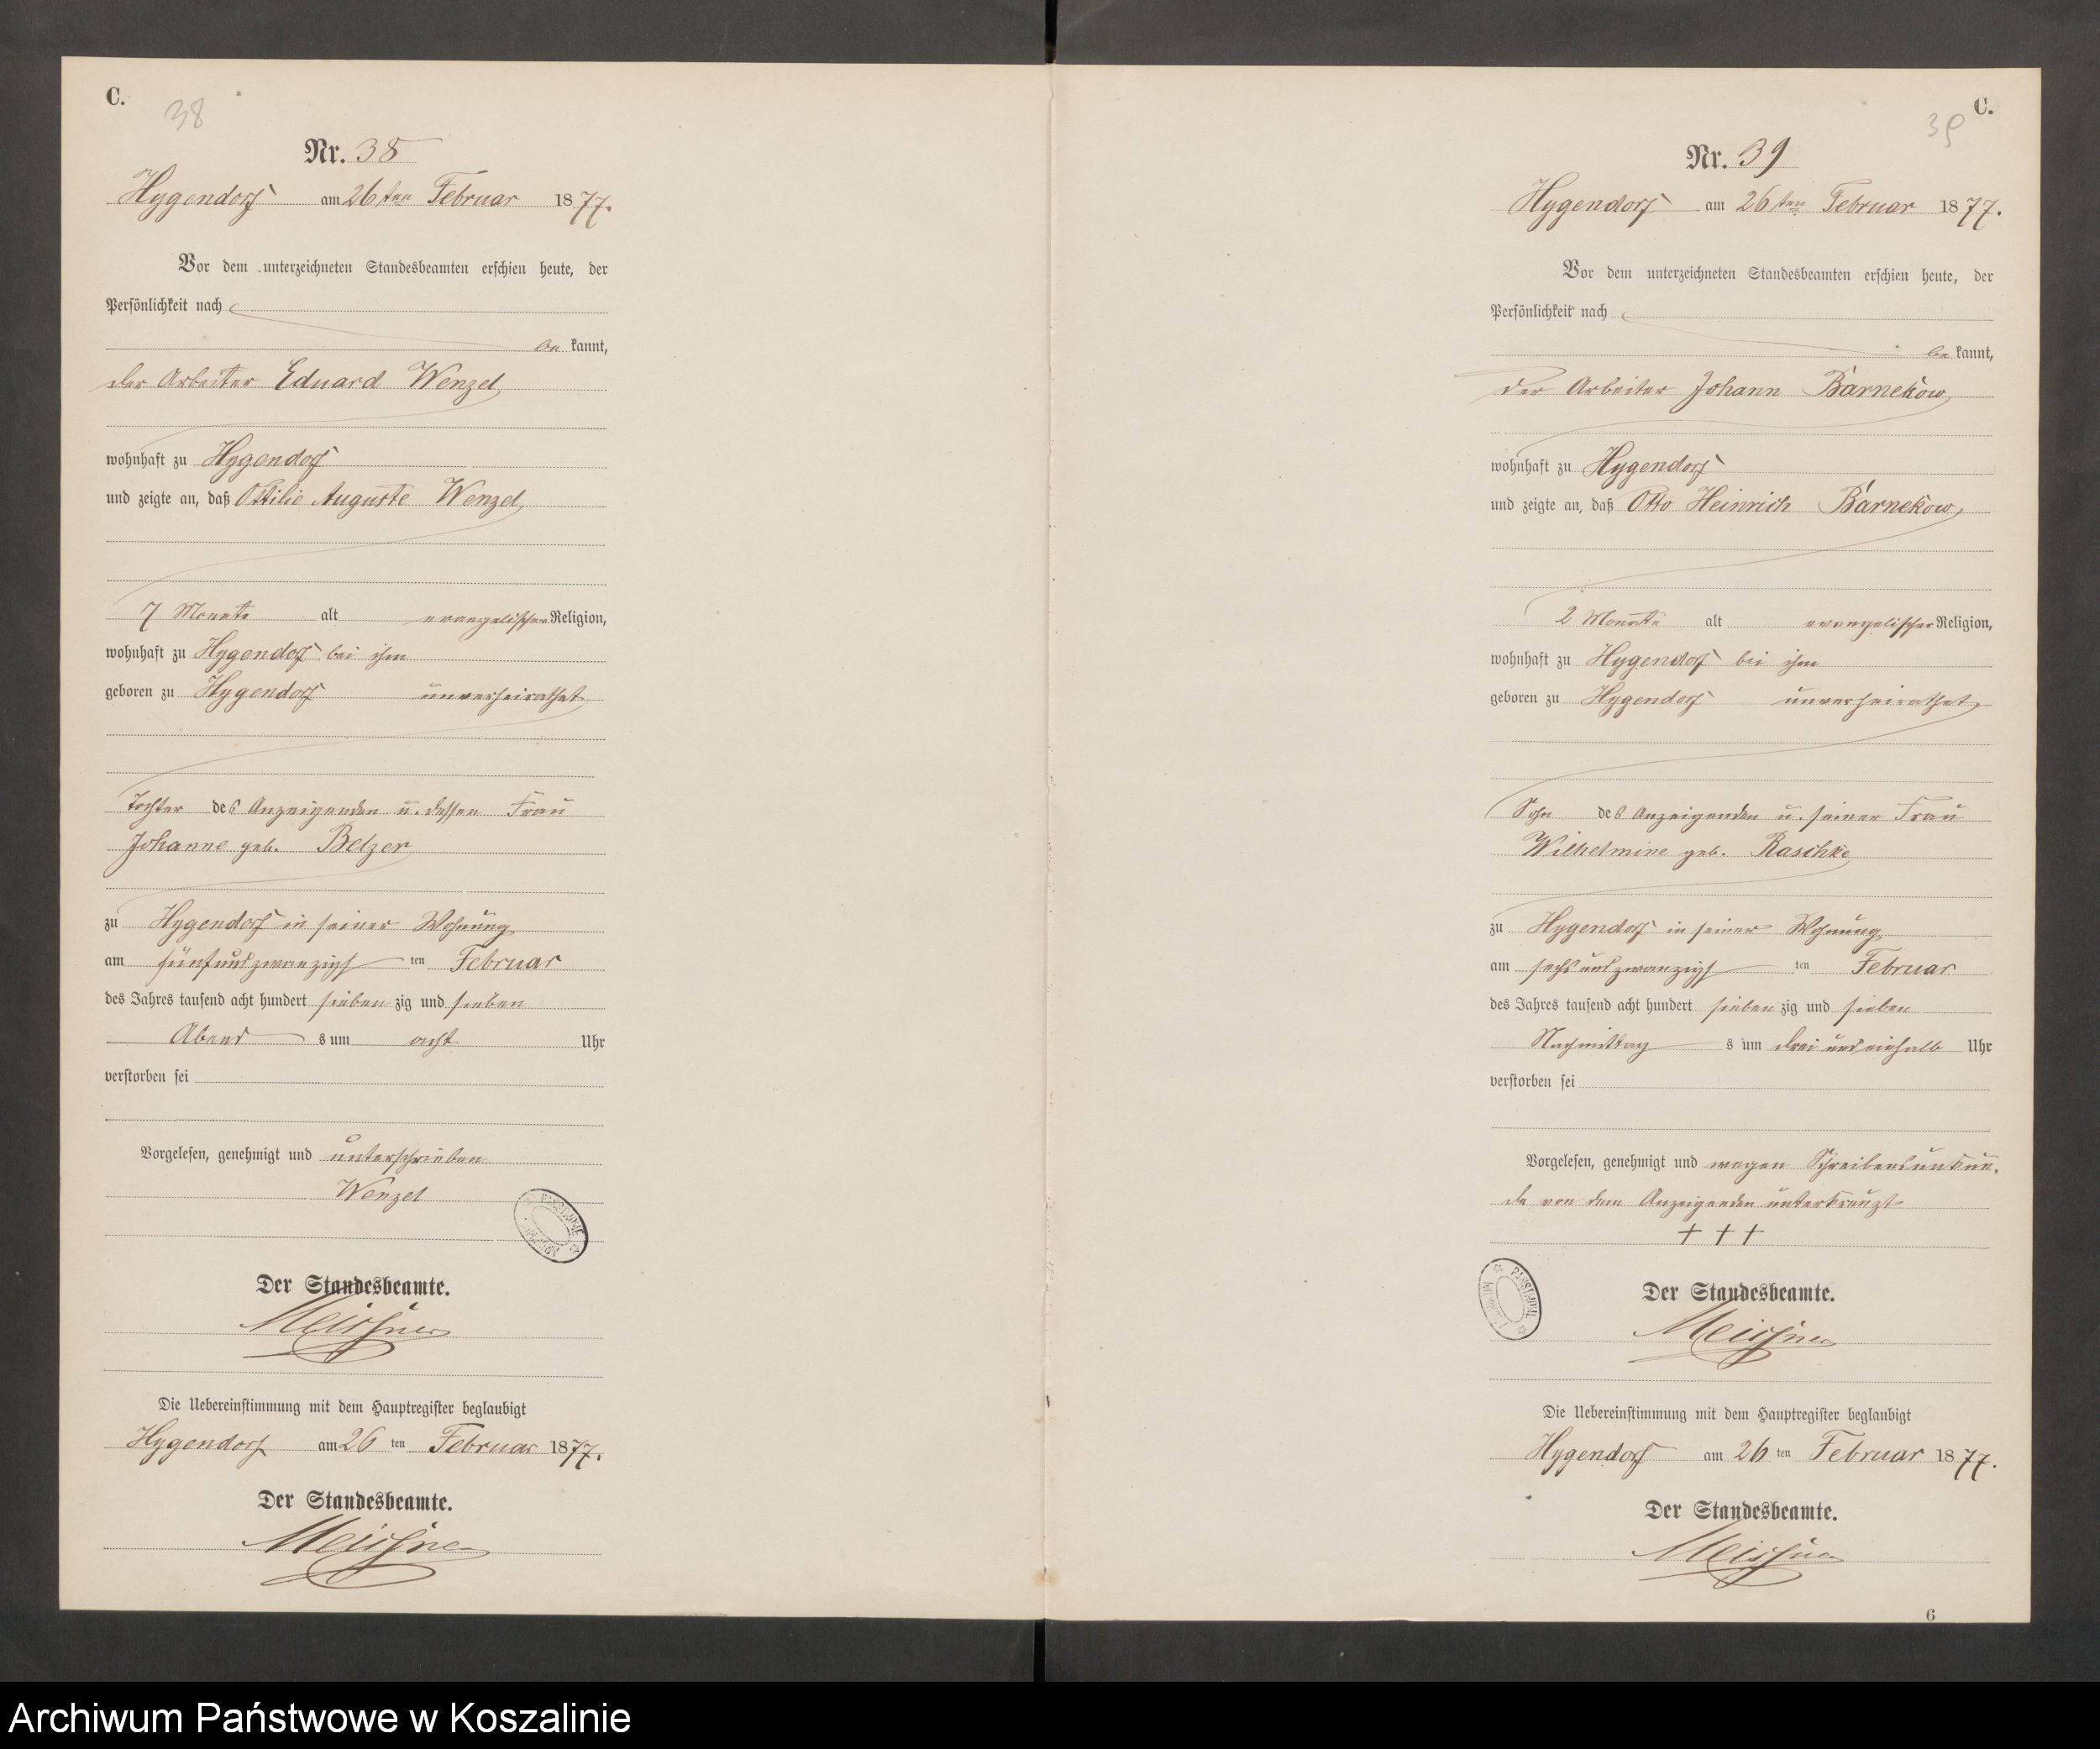 C.
38
Nr. 38
Hygendorf am 26ten Februar 1877.
Vor dem unterzeichneten Standesbeamten erschien heute, der
Persönlichkeit nach
be kannt,
der Arbeiter Eduard Wenzel
wohnhaft zu Hygendorf
und zeigte an, daß Ottilie Auguste Wenzel
7 Monate alt evangelischer Religion,
wohnhaft zu Hygendorf bei ihm
geboren zu Hygendorf unverheirathet
Tochter des Anzeigenden u. dessen Frau
Johanne geb. Belzer
zu Hygendorf in seiner Wohnung
am fünfundzwanzigsten Februar
des Jahres tausend acht hundert siebenzig und sieben
Abends um acht Uhr
verstorben sei
Vorgelesen, genehmigt und unterschrieben
Wenzel
Der Standesbeamte.
Meissner
Die Uebereinstimmung mit dem Hauptregister beglaubigt
Hygendorf am 26ten Februar 1877.
Der Standesbeamte.
Meissner
C.
39
Nr. 39
Hygendorf am 26ten Februar 1877.
Vor dem unterzeichneten Standesbeamten erschien heute, der
Persönlichkeit nach
be kannt,
der Arbeiter Johann Barnekow
wohnhaft zu Hygendorf
und zeigte an, daß Otto Heinrich Barnekow,
2 Monate alt evangelischer Religion,
wohnhaft zu Hygendorf bei ihm
geboren zu Hygendorf unverheirathet
Sohn des Anzeigenden u. seiner Frau
Wilhelmine geb. Raschke
zu Hygendorf in seiner Wohnung
am sechsundzwanzigsten Februar
des Jahres tausend acht hundert siebenzig und sieben
Nachmittags um drei und einhalb Uhr
verstorben sei
Vorgelesen, genehmigt und wegen Schreibensunkun-
de von dem Anzeigenden unterkreuzt
+ + +
Der Standesbeamte.
Meissner
Die Uebereinstimmung mit dem Hauptregister beglaubigt
Hygendorf am 26ten Februar 1877.
Der Standesbeamte.
Meissner
6
Archiwum Państwowe w Koszalinie